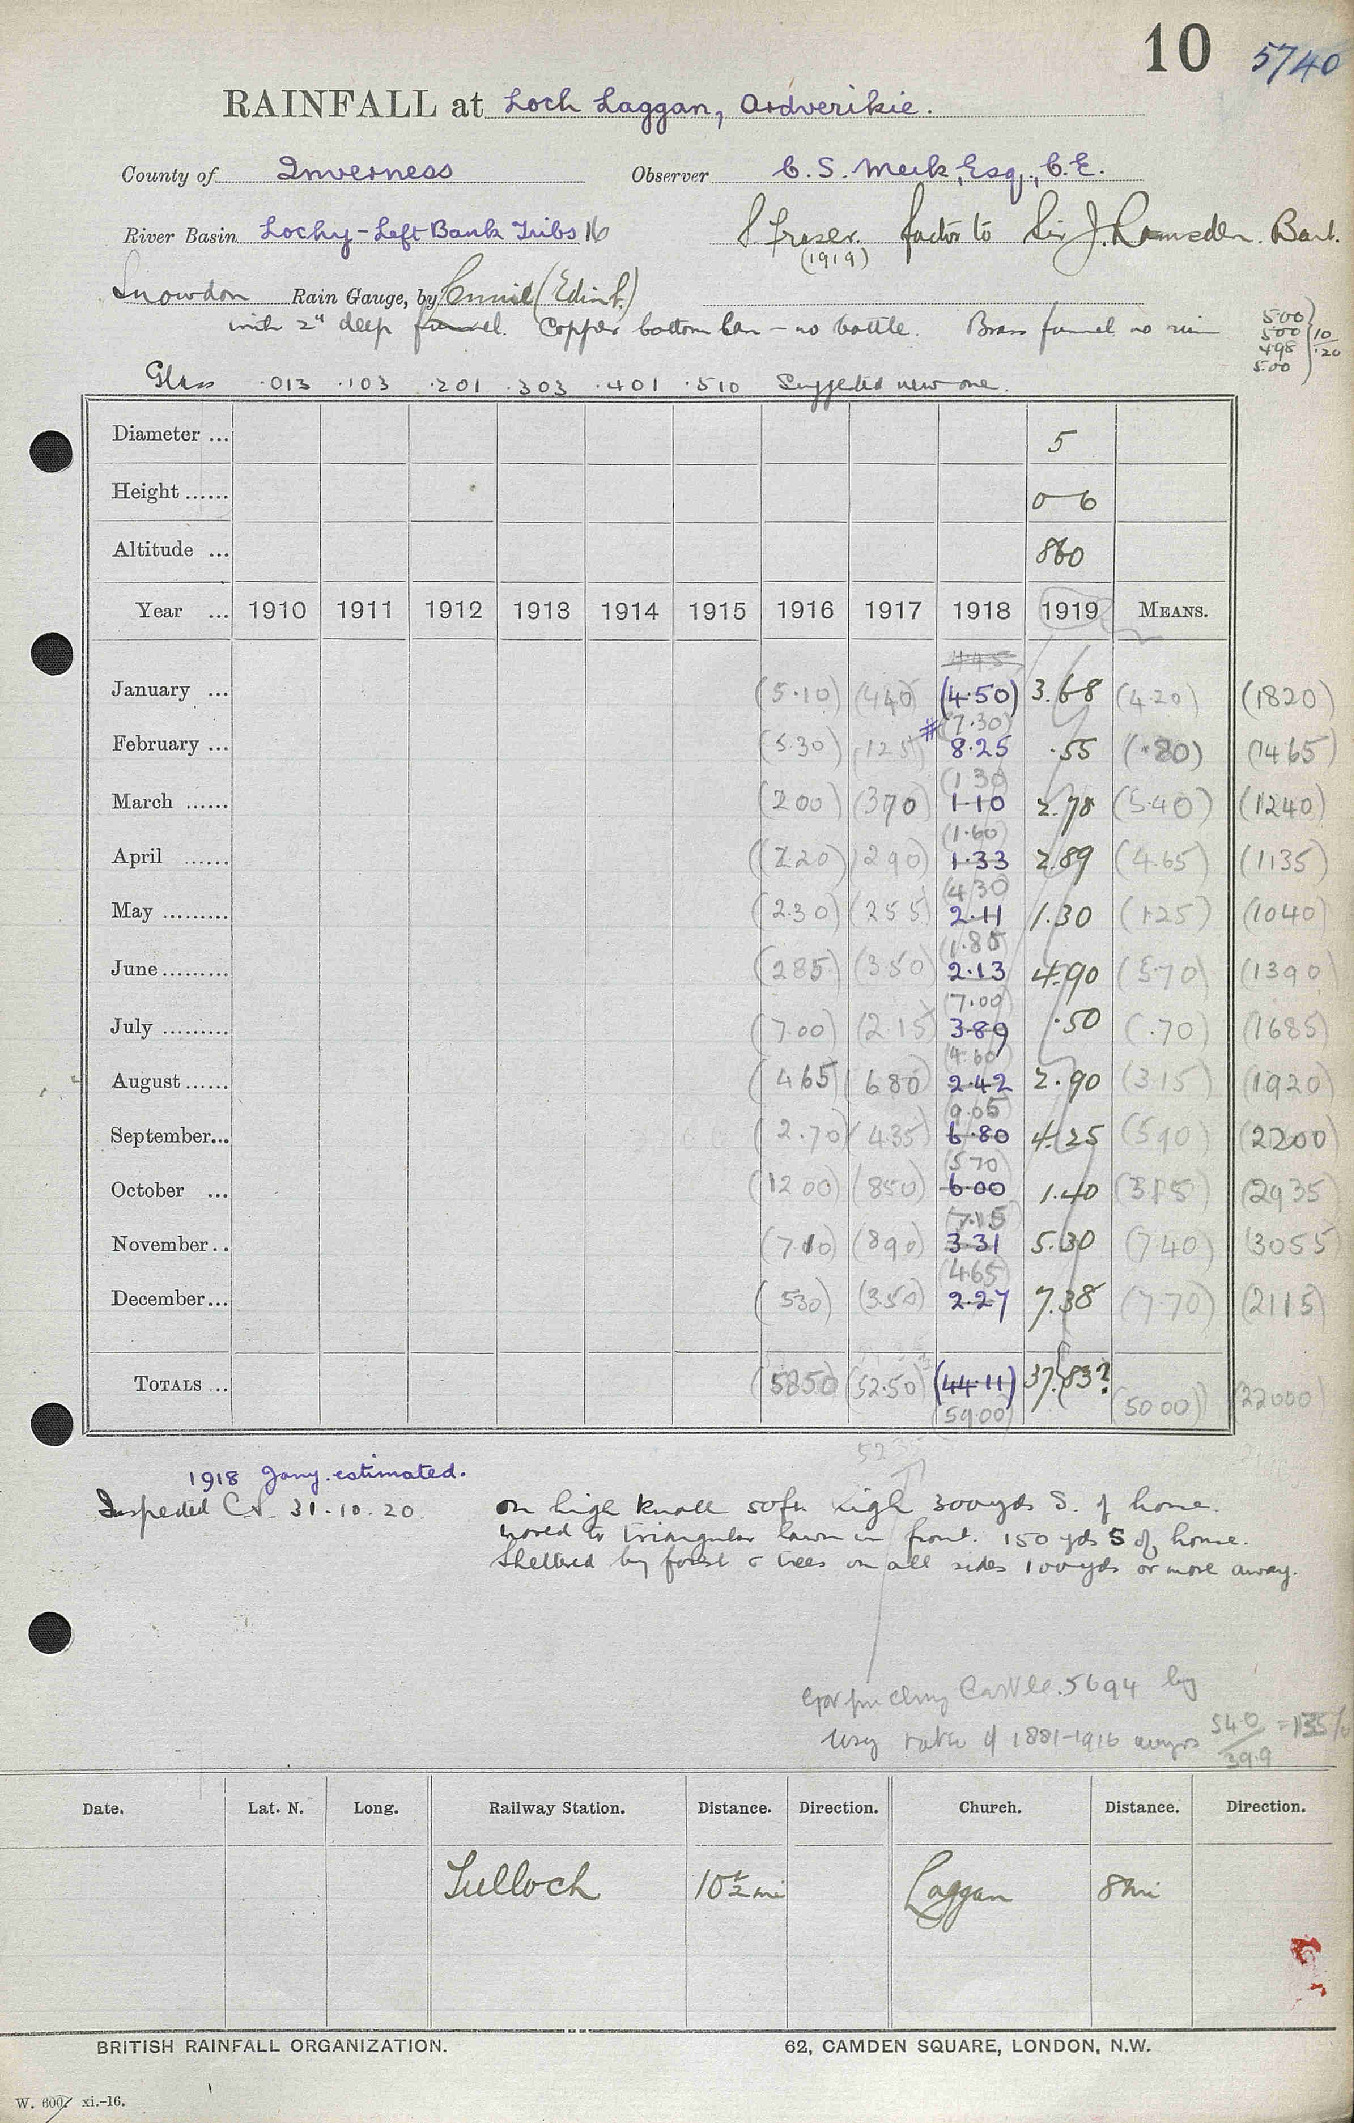 10 5740
RAINFALL at Loch Laggan, Ardverikie.
County of Inverness Observer C. S. Meik, Esq., C.E.
River Basin Lochy-Left Bank Tribs 16 S Fraser. factor to Sir J. Ramsden. Bart.
(1919)
Snowdon Rain Gauge, by (Edinb.)
with 2" deep funnel. Copper bottom can - no bottle. Brass funnel no rim
500
500
498
500
10/.20
Glass .013 .103 .201 .303 .401 .510 Suggested new one.
Diameter ... 5
Height ...... 0-6
Altitude ... 860
Year ... 1910 1911 1912 1913 1914 1915 1916 1917 1918 1919 MEANS.
4.45
January ... (5.10) (440) (4.50) 3.68 (4.20) (1820)
# (7.30)
February ... (5.30) (125) 8.25 .55 (.80) (1465)
(1 30)
March ...... (200) (370) 1.10 2.78 (5.40) (1240)
(1.60)
April ...... (220) (290) 1.33 2.89 (4.65) (1135)
(4 30)
May ......... (2.30) (255) 2.11 1.30 (125) (1040)
(1.85)
June ......... (285) (350) 2.13 4.90 (570) (1390)
(7.00)
July ......... (7.00) (2.15) 3.89 .50 (.70) (1685)
(4.60)
August ...... (465) (680) 2.42 2.90 (315) (1920)
(9.05)
September... (2.70) (435) 6.80 4.25 (590) (2200)
(570)
October ... (1200) (850) 6.00 1.40 (385) (2935)
(7.15)
November.. (710) (890) 3.31 5.30 (740) (3055)
(465)
December... (530) (350) 2.27 7.38 (7.70) (2115)
TOTALS ... (5850) (52.50) (44.11) 37.83? (50 00) (22000)
(59.00)
1918 Jany. estimated.
Inspected 31.10.20. on high knoll 50ft high 300yds S. of house.
moved to triangular lawn in front. 150 yds S of house.
Sheltered by forest & trees on all sides 100yds or more away.
Castle. 5694 by
using ratio of 1881-1916 540/39.9 = 135%
Date. Lat. N. Long. Railway Station. Distance. Direction. Church. Distance. Direction.
Tulloch 10½ mi Laggan 8 mi
BRITISH RAINFALL ORGANIZATION. 62, CAMDEN SQUARE, LONDON, N.W.
W. 600/ xi.-16.